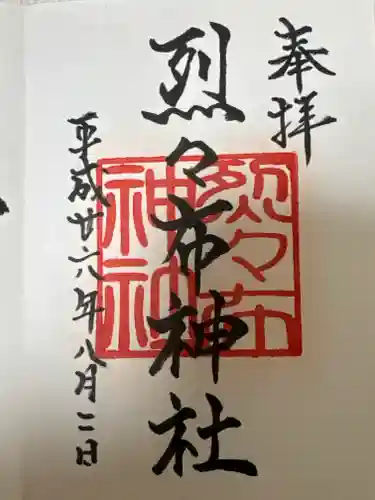 奉拝
烈々布神社
烈々布神社
平成廿六年八月二日